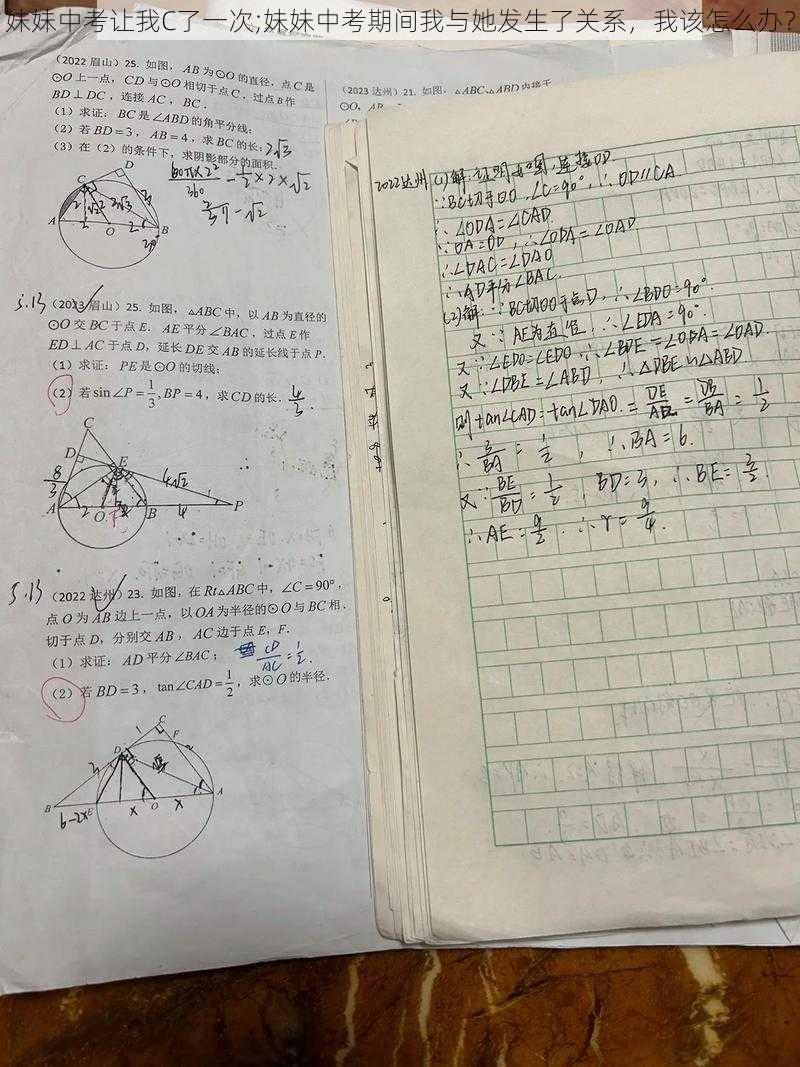 (2022 眉山) 25. 如图, AB 为⊙O 的直径, 点 C 是
⊙O 上一点, CD 与⊙O 相切于点 C, 过点 B 作
BD⊥DC, 连接 AC, BC.
(1) 求证: BC 是∠ABD 的角平分线;
(2) 若 BD=3, AB=4, 求 BC 的长; 2√3
(3) 在 (2) 的条件下, 求阴影部分的面积.
(2023 眉山) 25. 如图, △ABC 中, 以 AB 为直径的
⊙O 交 BC 于点 E. AE 平分∠BAC, 过点 E 作
ED⊥AC 于点 D, 延长 DE 交 AB 的延长线于点 P.
(1) 求证: PE 是⊙O 的切线;
(2) 若 sin∠P=1/3, BP=4, 求 CD 的长. 4/3.
(2022 达州) 23. 如图, 在 Rt△ABC 中, ∠C=90°,
点 O 为 AB 边上一点, 以 OA 为半径的⊙O 与 BC 相
切于点 D, 分别交 AB, AC 边于点 E, F.
(1) 求证: AD 平分∠BAC; CD/AC=1/2.
(2) 若 BD=3, tan∠CAD=1/2, 求⊙O 的半径.
(2023 达州) 21. 如图, △ABC、△ABD 内接于
2022达州 (1)解: 证明: 如图, 连接OD
∵BC切于⊙O, ∠C=90°, ∴OD∥CA
∴∠ODA=∠CAD
∵OA=OD, ∴∠ODA=∠OAD
∴∠DAC=∠DAO
∴AD平分∠BAC.
(2)解: ∵BC切⊙O于点D, ∴∠BDO=90°
又∵AE为直径, ∴∠EDA=90°.
又∵∠EDO=∠EDO ∴∠BDE=∠ODA=∠OAD.
又∵∠DBE=∠ABD, ∴△DBE∽△ABD
则 tan∠CAD=tan∠DAO.=DE/AE=DB/BA=1/2
∴3/BA=1/2, ∴BA=6.
又∵BE/BD=1/2, BD=3, ∴BE=3/2.
∴AE=9/2. ∴r=9/4.